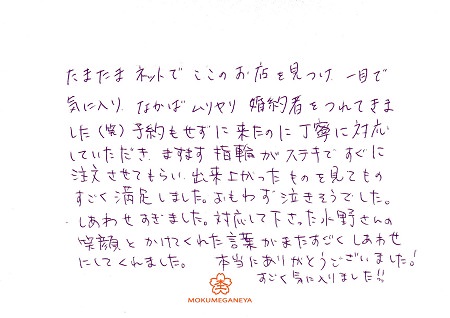 たまたま ネットで ここのお店を見つけ 一目で
気に入り、なかば ムリヤリ 婚約者をつれてきま
した(笑) 予約もせずに来たのに 丁寧に対応
していただき、ますます 指輪がステキですぐに
注文させてもらい、出来上がったものを見てもの
すごく満足しました。おもわず泣きそうでした。
しあわせすぎました。対応して下さった水野さんの
笑顔とかけてくれた言葉がまたすごくしあわせ
にしてくれました。 本当にありがとうございました!
すごく気に入りました!!
MOKUMEGANEYA